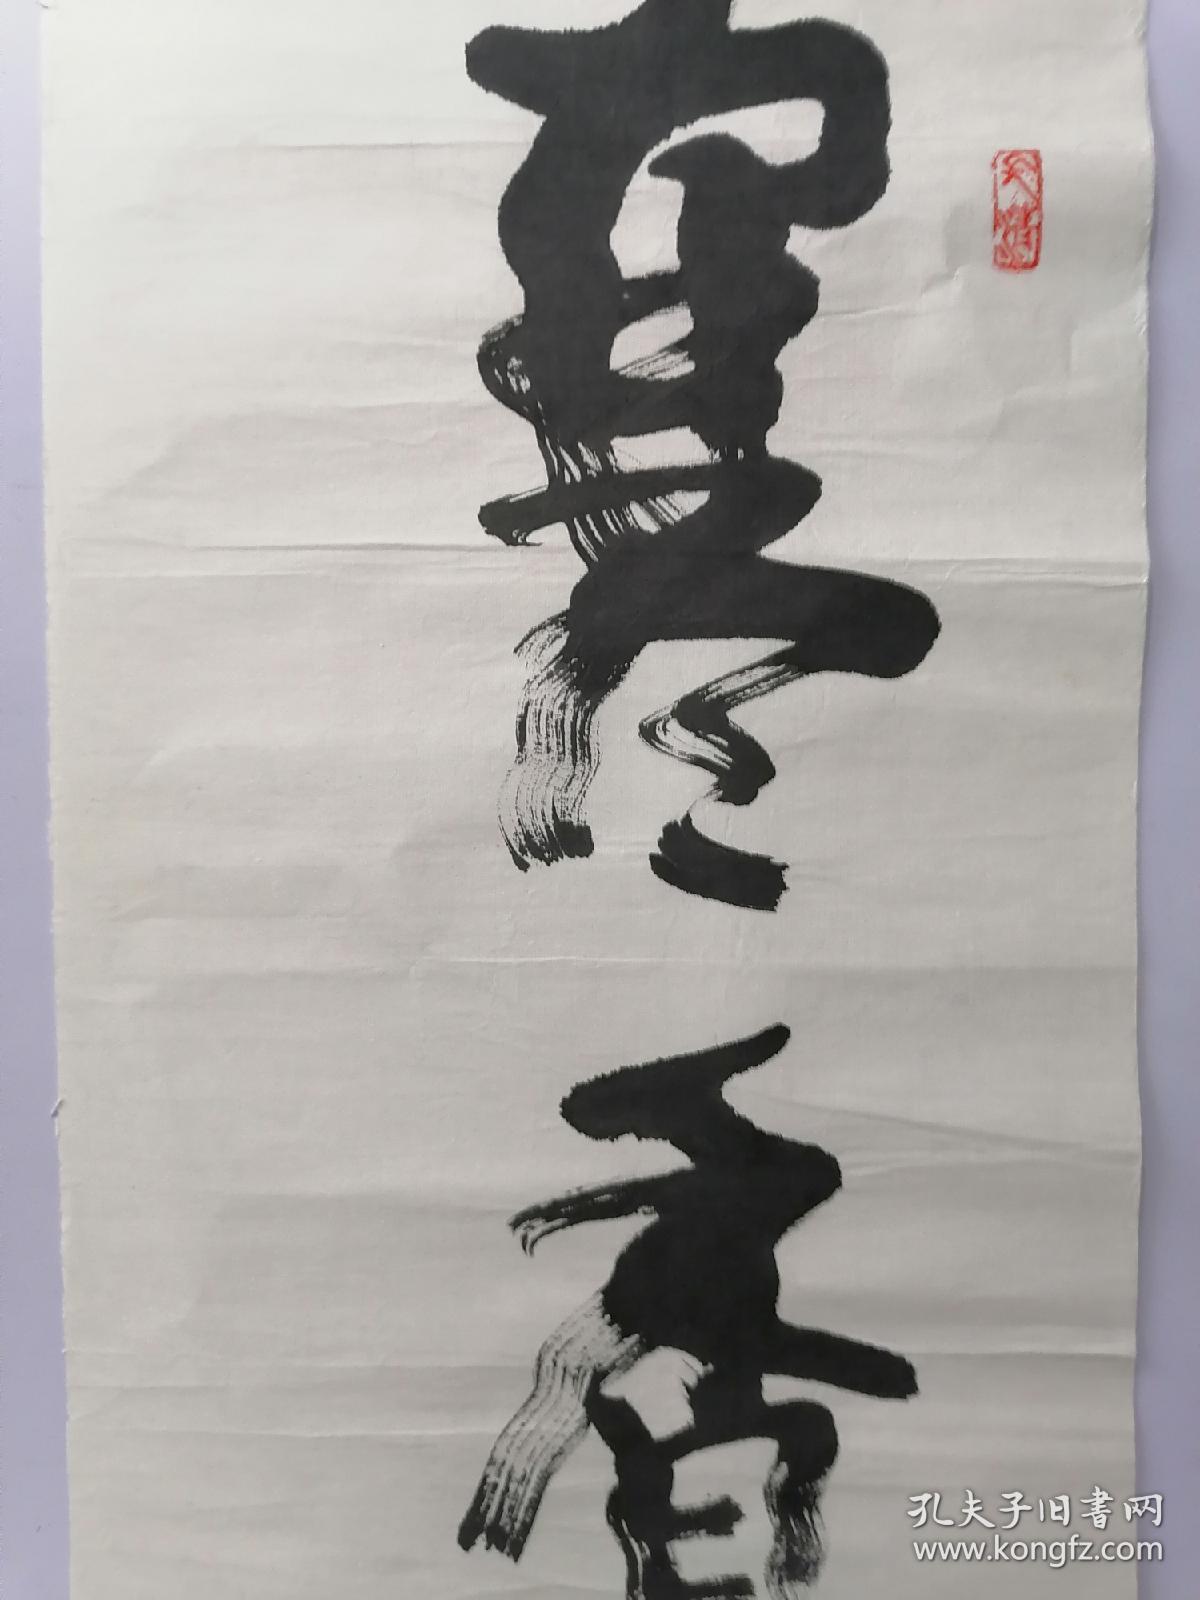 寒香
孔夫子旧書网
www.kongfz.com